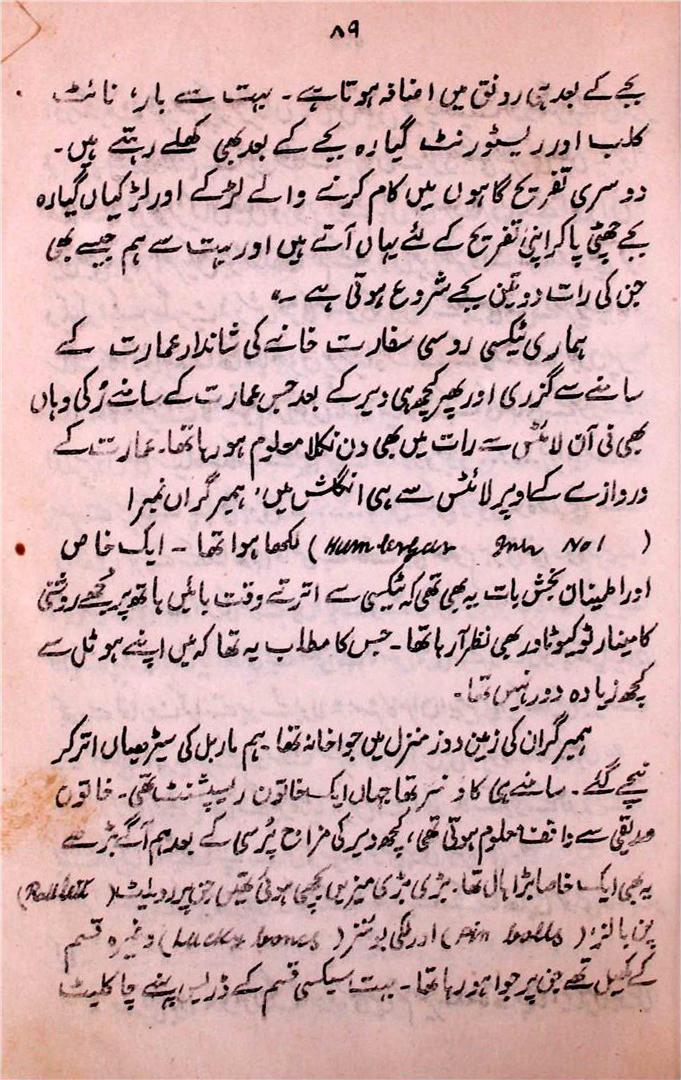 ۸۹
بجے کے بعد ہی رونق میں اضافہ ہوتا ہے۔ بہت سے بار، نائٹ
کلب اور ریسٹورنٹ گیارہ بجے کے بعد بھی کھلے رہتے ہیں۔
دوسری تفریح گاہوں میں کام کرنے والے لڑکے اور لڑکیاں گیارہ
بجے چھٹی پا کر اپنی تفریح کے لئے یہاں آتے ہیں اور بہت سے ہم جیسے بھی
جن کی رات دو تین بجے شروع ہوتی ہے ۔"
ہماری ٹیکسی روسی سفارت خانے کی شاندار عمارت کے
سامنے سے گزری اور پھر کچھ ہی دیر کے بعد جس عمارت کے سامنے رُکی وہاں
بھی نی آن لائٹس سے رات میں بھی دن نکلا معلوم ہو رہا تھا۔ عمارت کے
دروازے کے اوپر لائٹس سے ہی انگلش میں، ہمبرگراں نمبر ۱
( Humbergar Inn No 1 ) لکھا ہوا تھا ۔ ایک خاص
اور اطمینان بخش بات یہ بھی تھی کہ ٹیکسی سے اترتے وقت بائیں ہاتھ پر مُجھے روشنی
کا مینار ٹوکیو ٹاور بھی نظر آ رہا تھا۔ جس کا مطلب یہ تھا کہ میں اپنے ہوٹل سے
کچھ زیادہ دور نہیں تھا۔
ہمبرگران کی زمین دوز منزل میں جوا خانہ تھا۔ ہم ماربل کی سیڑھیاں اتر کر
نیچے گئے۔ سامنے ہی کاونٹر تھا جہاں ایک خاتون ریسپشنسٹ تھی۔ خاتون
صدیقی سے واقف معلوم ہوتی تھی، کچھ دیر کی مزاج پُرسی کے بعد ہم آگے بڑھے
یہ بھی ایک خاصا بڑا ہال تھا۔ بڑی بڑی میزیں بچھی ہوئی تھیں جن پر رولیٹ (
پن بالز، ( Pin balls ) اور لکی بونئز ( Lucky bones ) وغیرہ قسم
کے کھیل تھے جن پر جوا ہو رہا تھا۔ بہت سیکسی قسم کے ڈریس پہنے چاکلیٹ